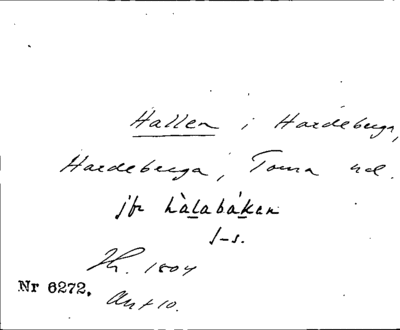 Hallen i Hardeberga,
Hardeberga, Torna hd.
jfr hàlabákan
s-s.
Jh. 1804
Nr 6272.
Ant 10.